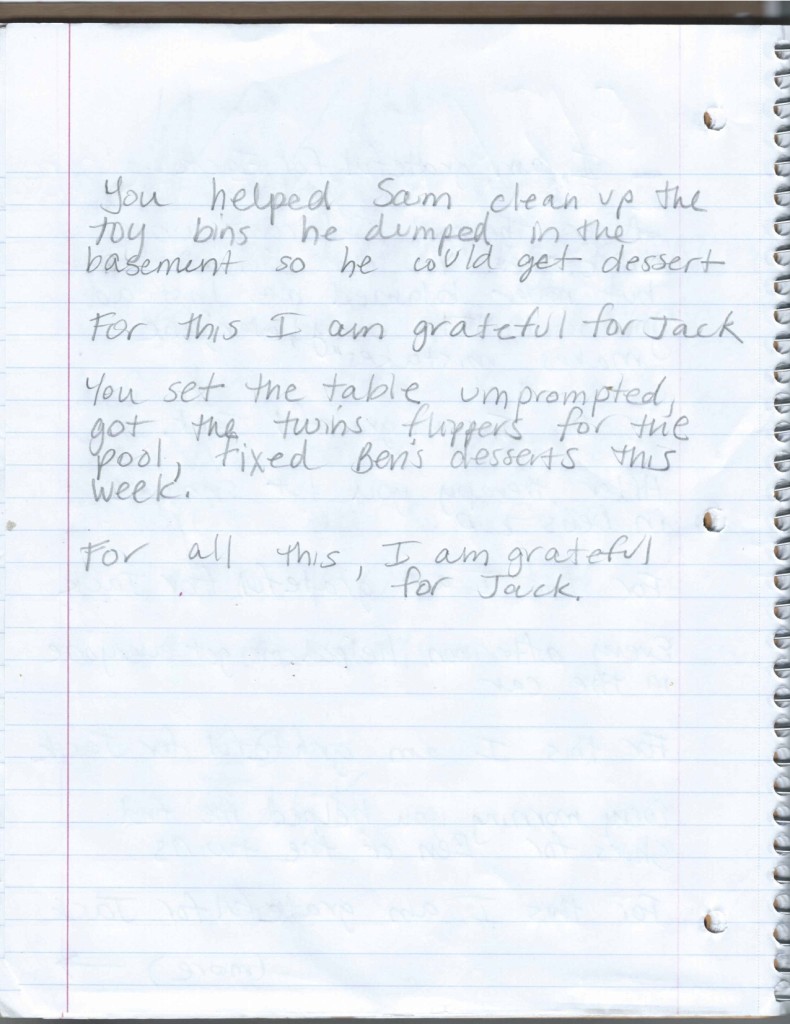 You helped Sam clean up the
toy bins he dumped in the
basement so he could get dessert
For this I am grateful for Jack
You set the table umprompted,
got the twins flippers for the
pool, fixed Ben's desserts this
week.
For all this, I am grateful
for Jack.